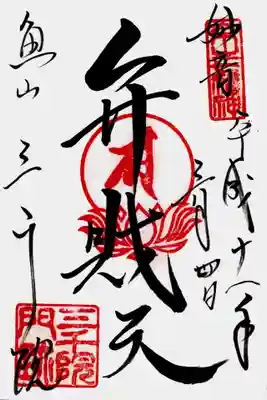 妙音
平成十一年
三月四日
弁財天
魚山 三千院
三千院
門跡